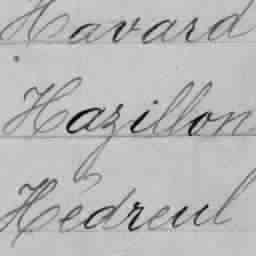 Havard
Hazillon
Hédreul